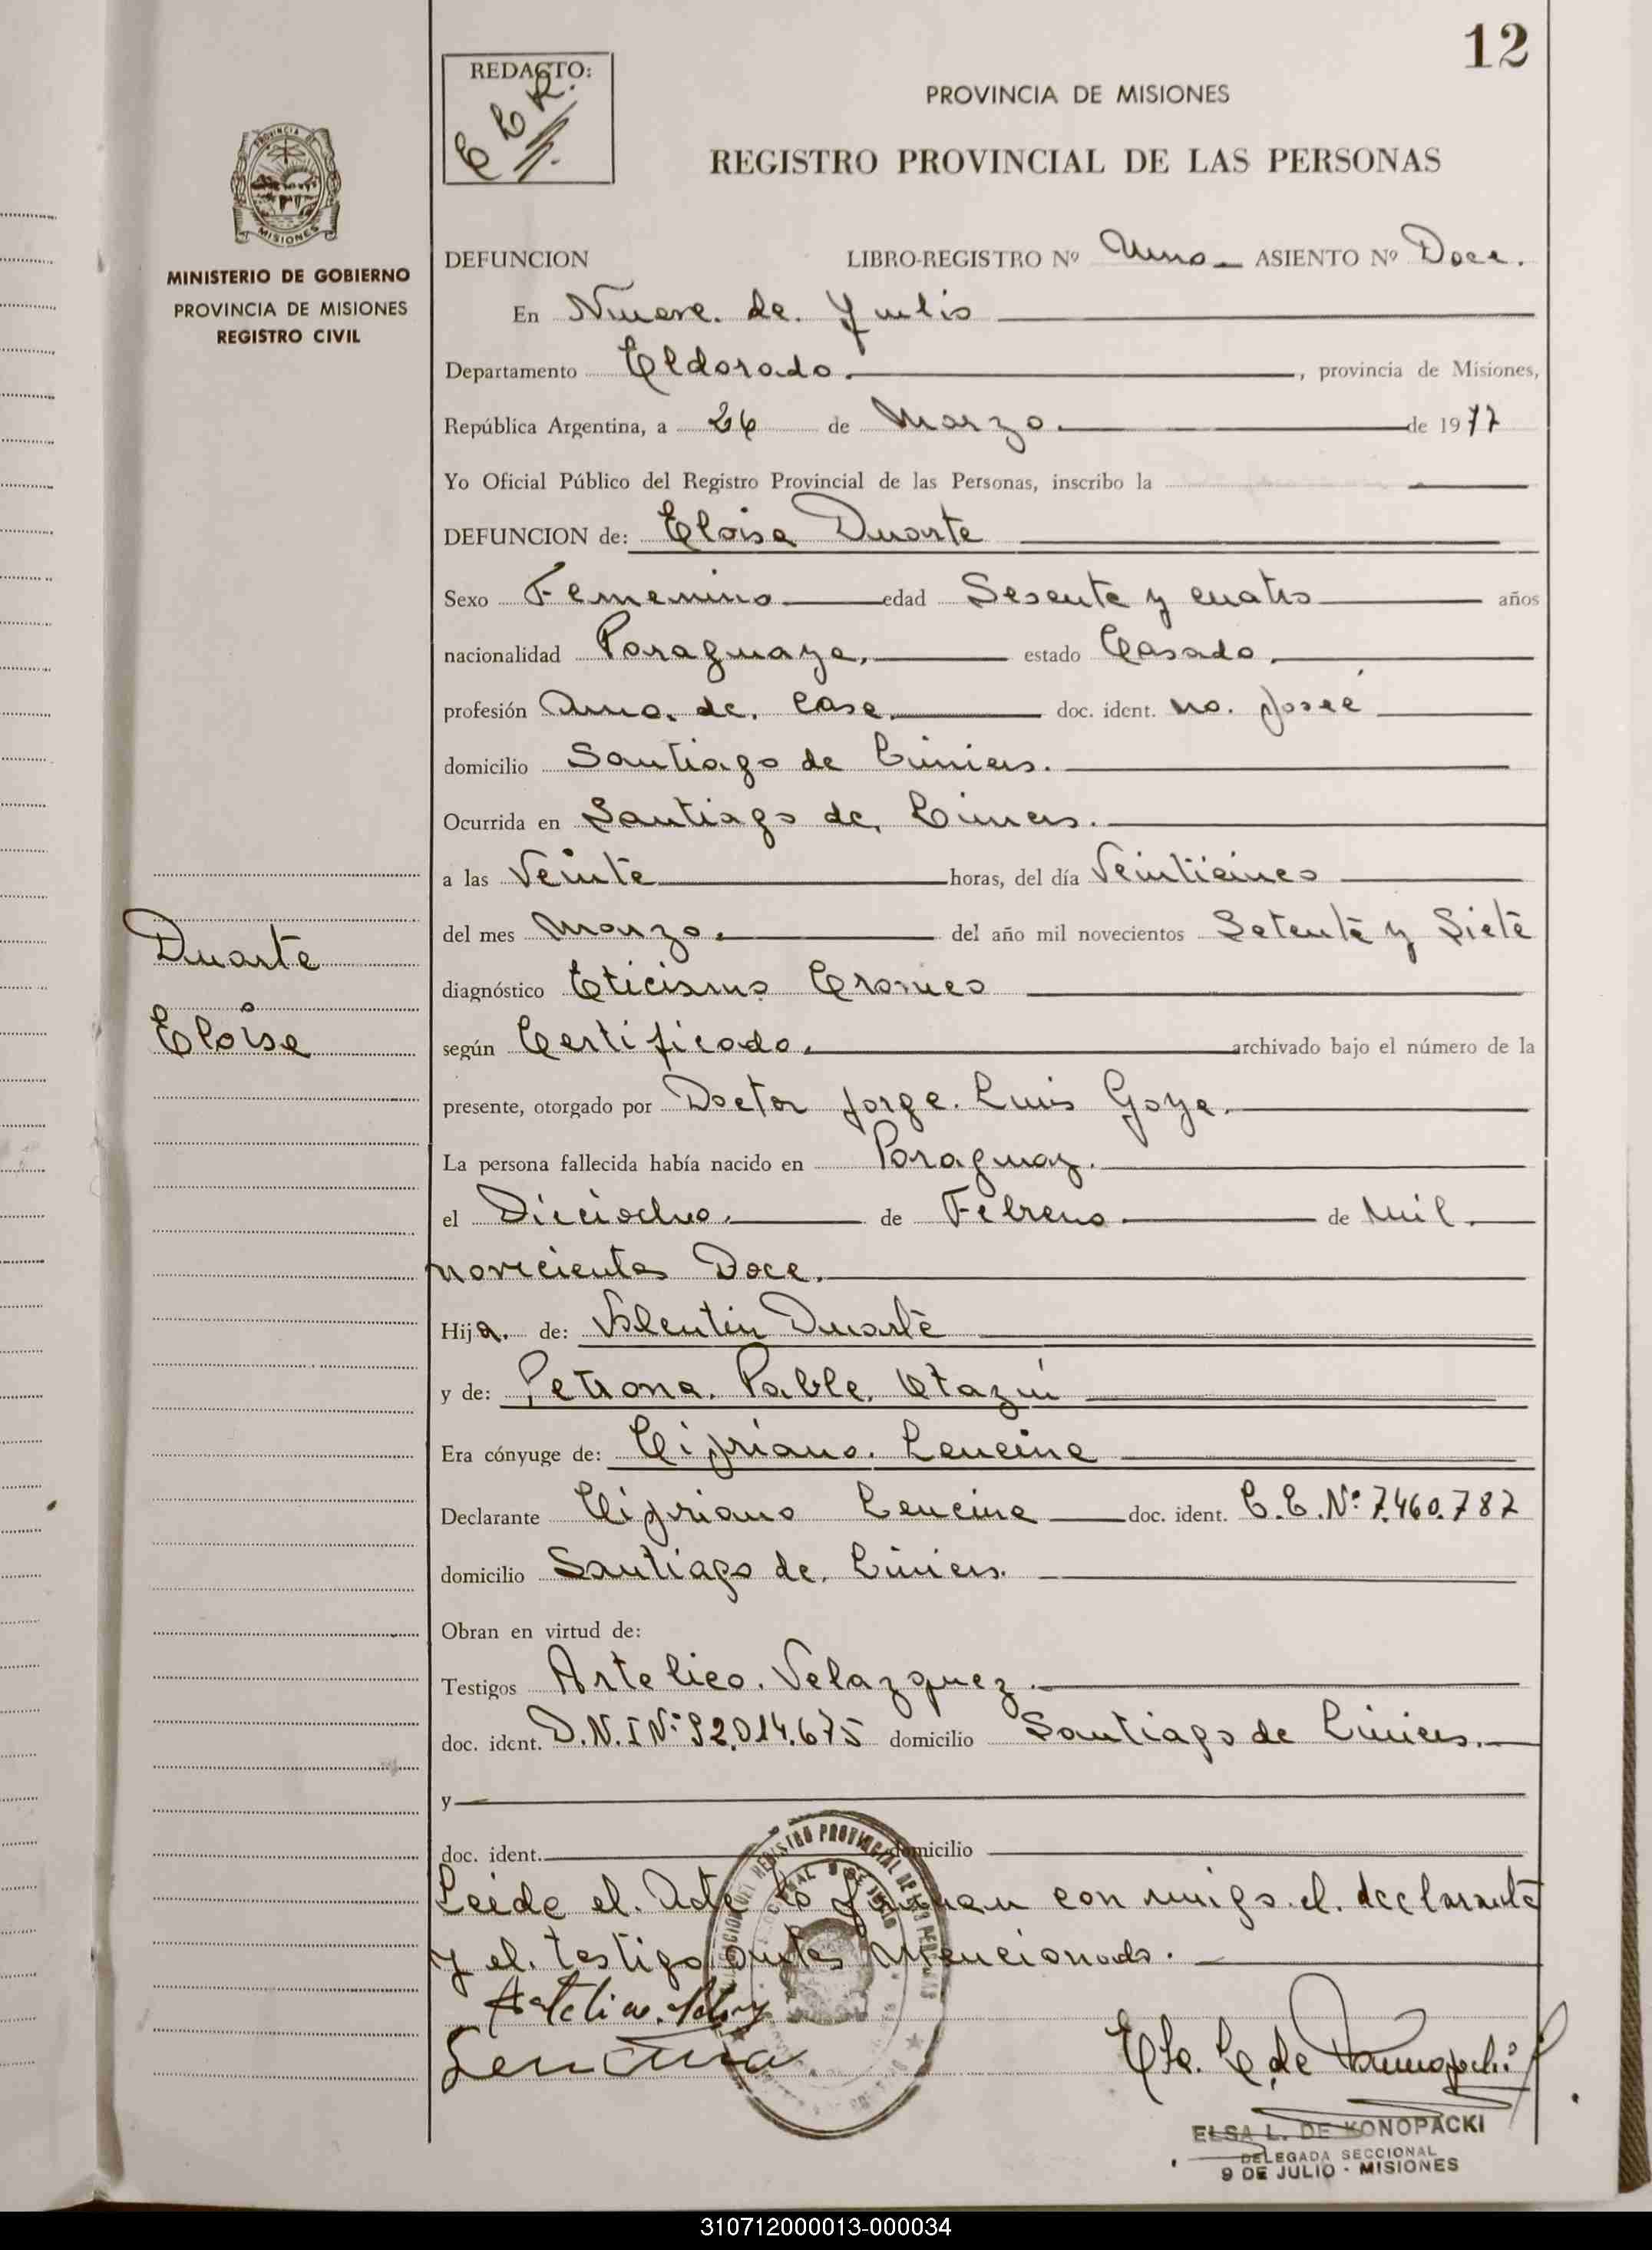 12
REDACTO:
PROVINCIA DE MISIONES
REGISTRO PROVINCIAL DE LAS PERSONAS
PROVINCIA DE
MISIONES
MINISTERIO DE GOBIERNO
PROVINCIA DE MISIONES
REGISTRO CIVIL
DEFUNCION LIBRO-REGISTRO Nº Uno ASIENTO Nº Doce.
En Nueve de Julio
Departamento Eldorado, provincia de Misiones,
República Argentina, a 26 de Marzo de 1977
Yo Oficial Público del Registro Provincial de las Personas, inscribo la
DEFUNCION de: Eloisa Duarte
Sexo Femenino edad Sesenta y cuatro años
nacionalidad Paraguaya, estado Casada
profesión Ama de Casa doc. ident. no posee
domicilio Santiago de Liniers.
Ocurrida en Santiago de Liniers.
a las Veinte horas, del día Veinticinco
del mes Marzo del año mil novecientos Setenta y Siete
Duarte
Eloisa
diagnóstico Eticismo Cronico
según Certificado archivado bajo el número de la
presente, otorgado por Doctor Jorge Luis Goya.
La persona fallecida había nacido en Paraguay.
el Dieciocho de Febrero de Mil
novecientos Doce.
Hija de: Valentin Duarte
y de: Petrona Pabla Otazú
Era cónyuge de: Cipriano Lencina
Declarante Cipriano Lencina doc. ident. C.E.Nº 7.460.787
domicilio Santiago de Liniers.
Obran en virtud de:
Testigos Artelico Velazquez
doc. ident. D.N.I Nº 92.014.675 domicilio Santiago de Liniers.
y
doc. ident. domicilio
Leida el Acta lo firman con migo el declarante
y el testigo antes mencionado.
Lencina
ELSA L. DE KONOPACKI
DELEGADA SECCIONAL
9 DE JULIO - MISIONES
310712000013-000034